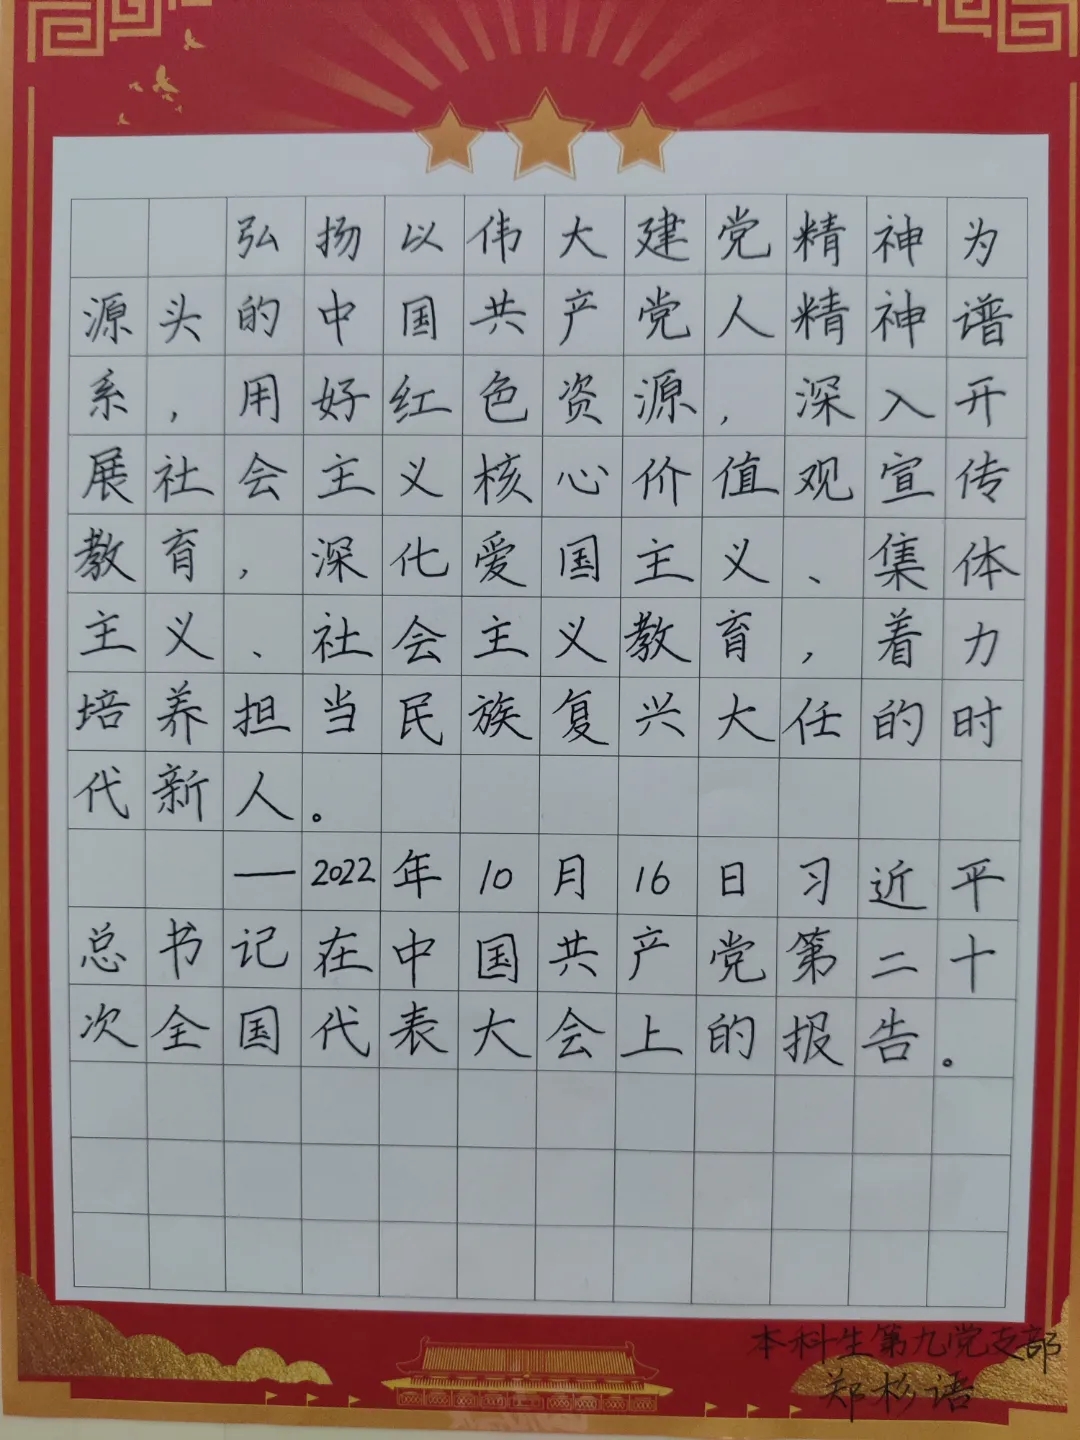 弘扬以伟大建党精神为
源头的中国共产党人精神谱
系，用好红色资源，深入开
展社会主义核心价值观宣传
教育，深化爱国主义、集体
主义、社会主义教育，着力
培养担当民族复兴大任的时
代新人。
—2022年10月16日习近平
总书记在中国共产党第二十
次全国代表大会上的报告。
本科生第九党支部
郑杉语